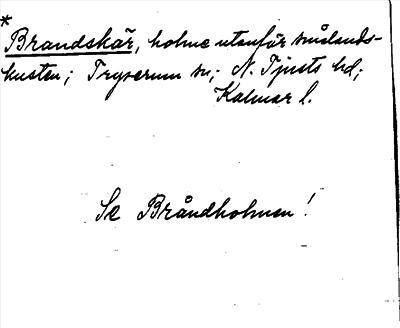 *
Brandskär, holme utanför smålands-
kusten; Tryserum sn; N. Tjusts hd;
Kalmar l.
Se Bråndholmen!